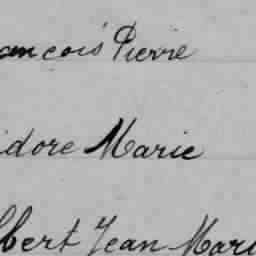 ancois Pierre
idore Marie
lbert Jean Mari